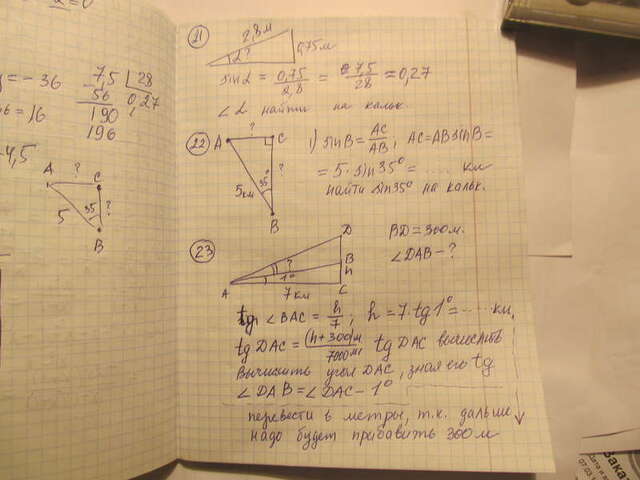 y = -36
7,5 | 28
56 0,27
190
196
= 16
-4,5
A ? C
5 35 ?
B
21
2,8 м
α?
0,75 м
sin α = 0,75/2,8 = 7,5/28 = 0,27
∠α найти на кальк.
22
A ? C
5 км 35° ?
B
1) sin B = AC/AB; AC = AB sin B =
= 5 · sin 35° = ..... км
найти sin 35° на кальк.
23
D
B
h
? 1°
A 7 км C
BD = 300 м.
∠DAB - ?
tg ∠BAC = h/7; h = 7 · tg 1° = ..... км.
tg DAC = (h+300)м/7000м tg DAC вычислить
Вычислить угол DAC, зная его tg
∠DAB = ∠DAC - 1°
перевести в метры, т.к. дальше
надо будет прибавить 300 м